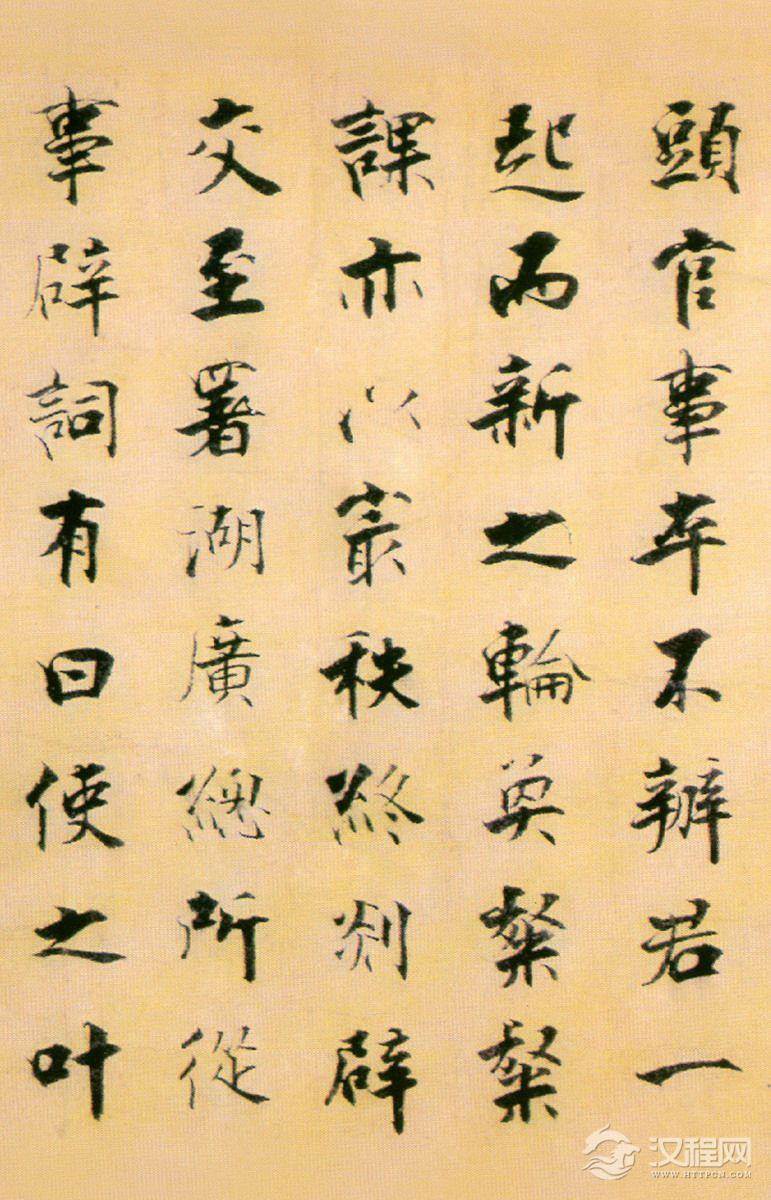 頭官事卒不辦若一
起而新之輪奐粲粲
課亦以最秩終剡辟
交至署湖廣總所從
事辟詞有曰使之叶
汉程网
WWW.HTTPCN.COM